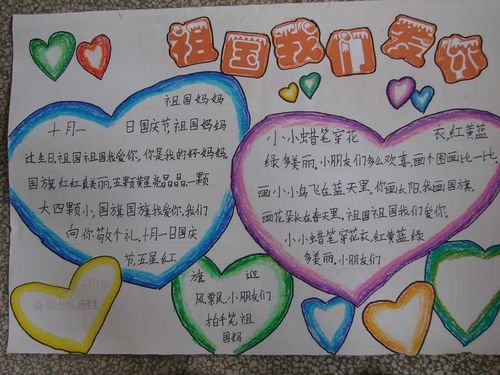 祖国我们爱你
祖国妈妈
十月一 日国庆节祖国妈妈
过生日祖国祖国我爱你,你是我的好妈妈,
国旗红红真美丽,五颗黄星亮晶晶,一颗
大四颗小,国旗国旗我爱你,我们
向你敬个礼,十月一日国庆
节五星红
小小蜡笔穿花 衣,红黄蓝
绿多美丽,小朋友们多么欢喜,画个图画比一比,
画小小鸟飞在蓝天里,你画太阳,我画国旗,
画花朵长在春天里,祖国祖国我们爱你,
小小蜡笔穿花衣,红黄蓝绿
多美丽,小朋友们
旗 迎
风飘飘,小朋友们
拍手笑祖
国妈